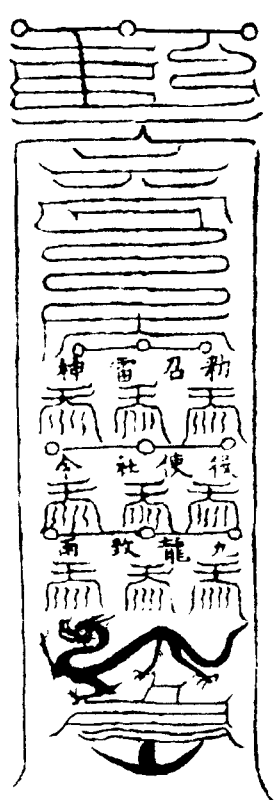 勅召雷神
役使社令
九龍致雨